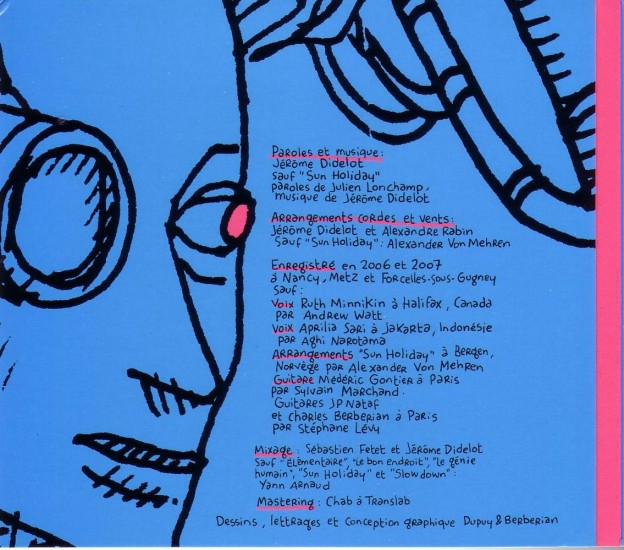 Paroles et musique:
Jérôme Didelot
sauf "Sun Holiday"
paroles de Julien Lonchamp,
musique de Jérôme Didelot
Arrangements cordes et vents:
Jérôme Didelot et Alexandre Rabin
Sauf "Sun Holiday": Alexander Von Mehren
Enregistré en 2006 et 2007
à Nancy, Metz et Forcelles-sous-Gugney
sauf:
Voix Ruth Minnikin à Halifax, Canada
par Andrew Watt
Voix Aprilia Sari à Jakarta, Indonésie
par Aghi Narotama
Arrangements "Sun Holiday" à Bergen,
Norvège par Alexander Von Mehren
Guitare Médéric Gontier à Paris
par Sylvain Marchand.
Guitares JP Nataf
et Charles Berberian à Paris
par Stéphane Lévy
Mixage: Sébastien Fetet et Jérôme Didelot
sauf "Élémentaire", "Le bon endroit", "Le génie
humain", "Sun Holiday" et "Slow down":
Yann Arnaud
Mastering: Chab à Translab
Dessins, lettrages et Conception graphique Dupuy & Berberian